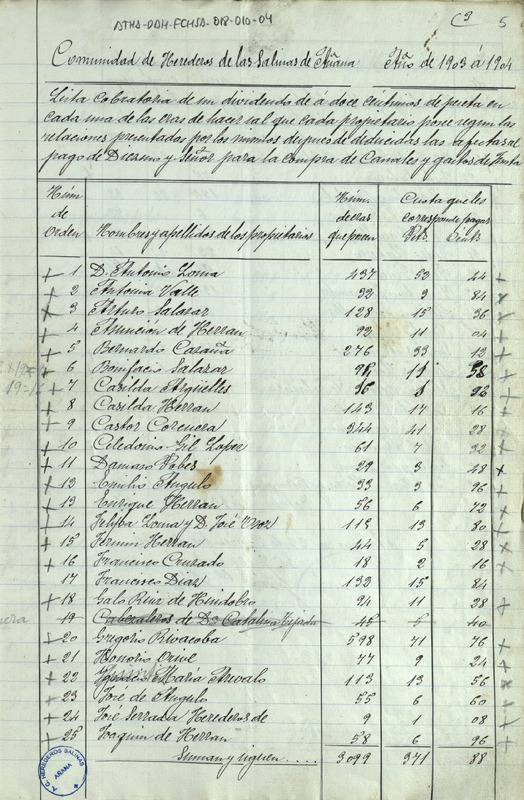 ATHA-DAH-FCHSA-018-010-04
Cª 5
Comunidad de Herederos de las Salinas de Añana Año de 1903 á 1904
Lista cobratoria de un dividendo de á doce céntimos de peseta en
cada una de las eras de hacer sal que cada propietario posee segun las
relaciones presentadas por los mismos despues de deducidas las afectas al
pago de Diezmo y Señor para la compra de Canales y gastos de Junta
Núm de Orden
Nombres y apellidos de los propietarios
Núm. de eras que poseen
Cuota que les corresponde pagar
Pets. Cents
1 D. Antonio Loma 437 52 44
2 Antonia Valle 32 3 84
3 Arturo Salazar 128 15 36
4 Asuncion de Herran 92 11 04
5 Bernardo Cazaña 276 33 12
6 Bonifacio Salazar 11 58
7 Casilda Argüelles 8
8 Casilda Herran 143 17 16
9 Castor Corcuera 344 41 28
10 Celedonio Gil Lopez 61 7 32
11 Damaso Tobes 29 3 48
12 Emilio Angulo 33 3 96
13 Enrique Herran 56 6 72
14 Felipa Loma y D. José 115 13 80
15 Fermin Herran 44 5 28
16 Francisco Cruzado 18 2 16
17 Francisco Diaz 132 15 84
18 Galo Ruiz de 94 11 28
19 Caberaleros de Dª Catalina Tejada 45 5 40
20 Gregorio Rivacoba 598 71 76
21 Honorio Orive 77 9 24
22 Ignacio María Arevalo 113 13 56
23 José de Angulo 55 6 60
24 José Serrada Herederos de 9 1 08
25 Joaquin de Herran 58 6 96
Suman y siguen .... 3099 371 88
C. HEREDEROS SALINAS
AÑANA